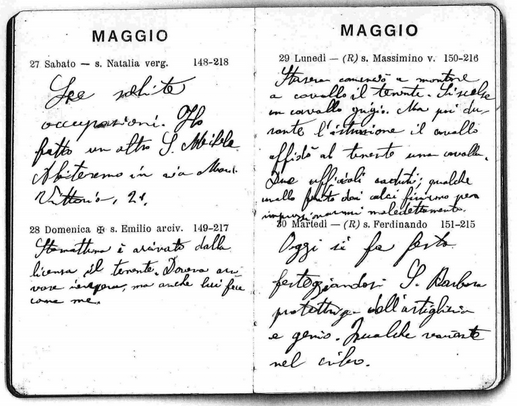 MAGGIO
27 Sabato — s. Natalia verg. 148-218
Le solite
occupazioni. Ho
fatto un altro S. Michele
Abiteremo in via
Vittorio, 21.
28 Domenica ✠ s. Emilio arciv. 149-217
Stamattina è arrivato dalla
licenza il tenente. Doveva arri-
vare iersera, ma anche lui fece
come me.
MAGGIO
29 Lunedì — (R) s. Massimino v. 150-216
Stasera cominciò a montare
a cavallo il tenente. Si scelse
un cavallo grigio. Ma poi du-
rante l'istruzione il cavallo
affidò al tenente una cavalla.
Due ufficiali caduti; qualche
cavallo dai calci finirono per
impressionarmi maledettamente.
30 Martedì — (R) s. Ferdinando 151-215
Oggi si fa festa
festeggiandosi S. Barbara
protettrice dell'artiglieria
e genio. Qualche variante
nel cibo.